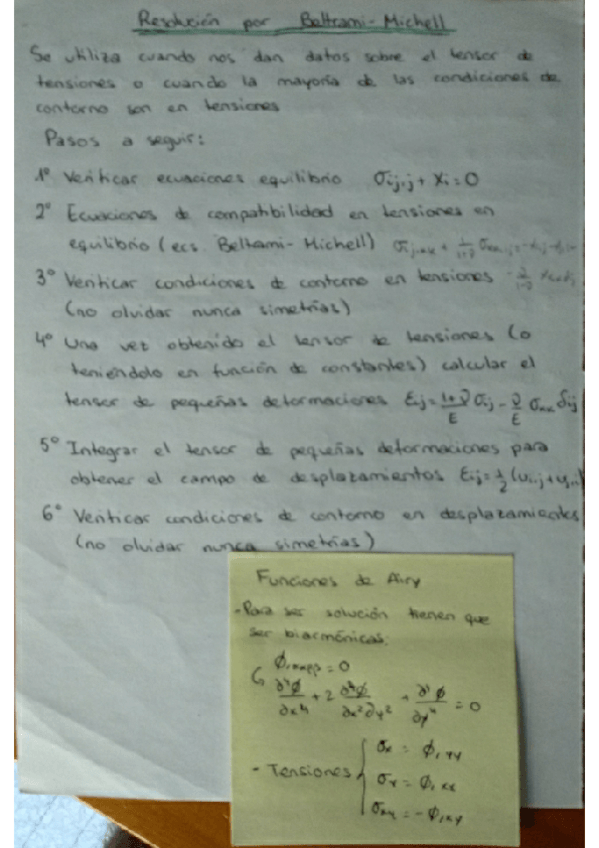 Resolución por Beltrami-Michell
Se utiliza cuando nos dan datos sobre el tensor de
tensiones o cuando la mayoría de las condiciones de
contorno son en tensiones
Pasos a seguir:
1º Verificar ecuaciones equilibrio σij,j + Xi = 0
2º Ecuaciones de compatibilidad en tensiones en
equilibrio (ecs. Beltrami-Michell)
3º Verificar condiciones de contorno en tensiones
(no olvidar nunca simetrías)
4º Una vez obtenido el tensor de tensiones (o
teniéndolo en función de constantes) calcular el
tensor de pequeñas deformaciones εij = (1+ν)/E σij - ν/E σkk δij
5º Integrar el tensor de pequeñas deformaciones para
obtener el campo de desplazamientos εij = 1/2 (ui,j + uj,i)
6º Verificar condiciones de contorno en desplazamientos
(no olvidar nunca simetrías)
Funciones de Airy
- Para ser solución tienen que
ser biarmónicas:
∂⁴φ/∂x⁴ + 2 ∂⁴φ/∂x²∂y² + ∂⁴φ/∂y⁴ = 0
σx = φ,yy
- Tensiones σy = φ,xx
σxy = -φ,xy